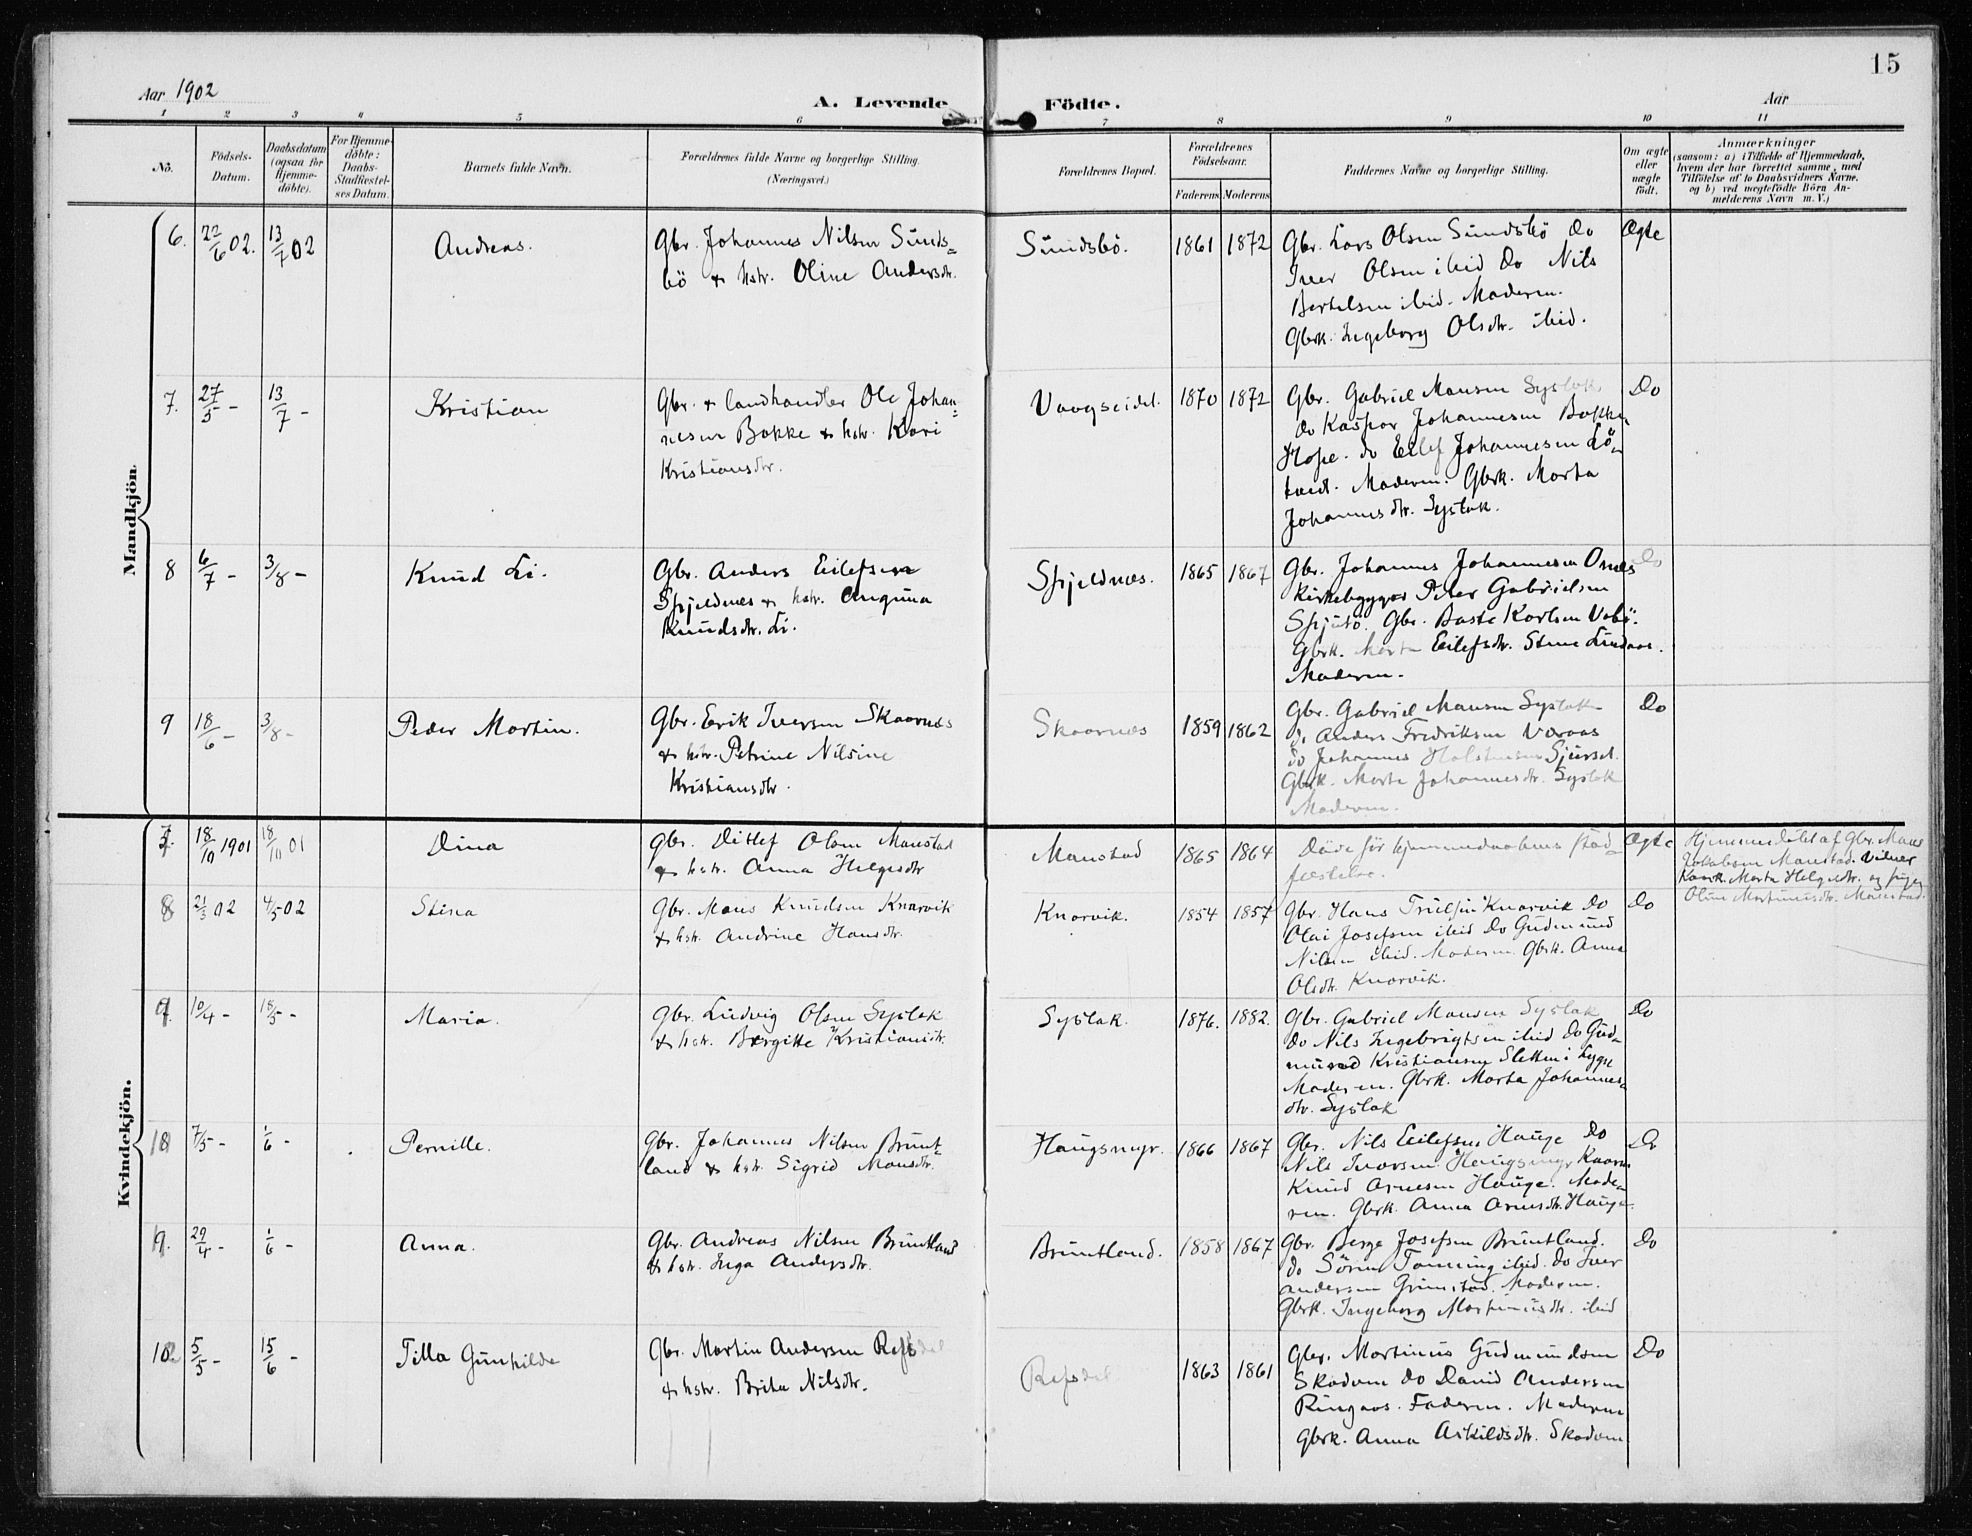 15
Aar 1902
A. Levende Födte.
Aar
1 2 3 4 5 6 7 8 9 10 11
No.
Födsels-
Datum.
Daabsdatum
(ogsaa for
Hjemme-
döbte).
For Hjemme-
döbte:
Daabs-
Stadfæstel-
ses Datum.
Barnets fulde Navn.
Forældrenes fulde Navne og borgerlige Stilling.
(Næringsvei.)
Forældrenes Bopæl.
Forældrenes
Födselsaar.
Faderens Moderens
Faddernes Navne og borgerlige Stilling.
Om ægte
eller
uægte
födt.
Anmærkninger
(saasom: a) i Tilfælde af Hjemmedaab,
hvem der har forrettet samme, med
Tilföielse af to Daabsvidners Navne,
og b) ved uægtefödte Börn An-
melderens Navn m. V.)
Mandkjön.
6. 22/6 02. 13/7 02
Andreas.
Gbr. Johannes Nilsen Sunds-
bö & hstr. Oline Andersdtr.
Sundsbö.
1861 1872
Gbr. Lars Olsen Sundsbö Do
Iver Olsen ibid Do Nils
Bertelsen ibid. Moderen.
Gbrk. Ingeborg Olsdtr. ibid.
Ægte
7. 27/5 – 13/7 –
Kristian
Gbr. & landhandler Ole Johan-
nesen Bakke & hstr. Kari
Kristiansdtr.
Vaagseidet.
1870 1872
Gbr. Gabriel Mansen Systak
do Kaspar Johannesen Bakke
Hope. do Eilef Johannesen Lö-
tveit. Moderen. Gbrk. Marta
Johannesdtr. Systak.
Do
8 6/7 – 3/8 –
Knud Li.
Gbr. Anders Eilefsen
Spjeldnæs & hstr. Anguna
Knudsdtr. Li.
Spjeldnæs.
1865 1867
Gbr. Johannes Johannesen Onæs
Kirkebygger Peder Gabrielsen
Spjutö. Gbr. Baste Karlsen Vabö.
Gbrk. Marta Eilefsdtr. Stine Lindaas.
Moderen.
Do
9 18/6 – 3/8 –
Peder Martin.
Gbr. Erik Iversen Skaarnæs
& hstr. Petrine Nilsine
Kristiansdtr.
Skaarnæs
1859 1862
Gbr. Gabriel Mansen Systak
do Anders Fredriksen Varaas
do Johannes Halstensen Sjurset.
Gbrk. Marta Johannesdtr. Systak
Moderen.
Do
Kvindekjön.
7. 18/10 1901 18/10 01
Dina
Gbr. Ditlef Olsen Manstad
& hstr. Anna Helgesdtr
Manstad
1865 1864
Döde för hjemmedaabens stad-
fæstelse.
Ægte
Hjemmedöbt af Gbr. Mans
Jakobsen Manstad. Vidner
Kaark. Marta Helgesdtr. og pige
Oline Martinusdtr. Manstad.
8 21/3 02 4/5 02
Stina
Gbr. Mons Knudsen Knarvik
& hstr. Andrine Hansdtr.
Knarvik.
1854 1857
Gbr. Hans Trulsen Knarvik Do
Olai Josefsen ibid Do Gudmund
Nilsen ibid. Moderen. Gbrk. Anna
Olsdtr. Knarvik.
Do
9. 10/4 – 18/5 –
Maria.
Gbr. Ludvig Olsen Systak
& hstr. Bergitte Kristiansdtr.
Systak.
1876. 1882.
Gbr. Gabriel Mansen Systak
Do Nils Ingebrigtsen ibid Do Gud-
mund Kristiansen Sletten i Lygre
Moderen. Gbrk. Marta Johannes-
dtr. Systak
Do
10 7/5 – 1/6 –
Pernille.
Gbr. Johannes Nilsen Brunt-
land & hstr. Sigrid Monsdtr.
Haugsmyr.
1866 1867
Gbr. Nils Eilefsen Hauge Do
Nils Ivarsen Haugsmyr Kaarm.
Knud Arnesen Hauge. Mode-
ren. Gbrk. Anna Arnesdtr. Hauge.
Do
29/4 – 1/6 –
Anna.
Gbr. Andreas Nilsen Bruntland
& hstr. Inga Andersdtr.
Bruntland.
1858 1867
Gbr. Berge Josefsen Bruntland.
do Sören Tonning ibid. Do Iver
Andersen Grimstad. Moderen.
Gbrk. Ingeborg Martinusdtr. ibid
Do
5/5 – 15/6 –
Tilla Gunhilde
Gbr. Martin Andersen Refsdal
& hstr. Brita Nilsdtr.
Refsdal
1863 1861
Gbr. Martinus Gudmundsen
Skodven Do David Andersen
Ringaas. Faderen. Moderen
Gbrk. Anna Askildsdtr. Skodven
Do